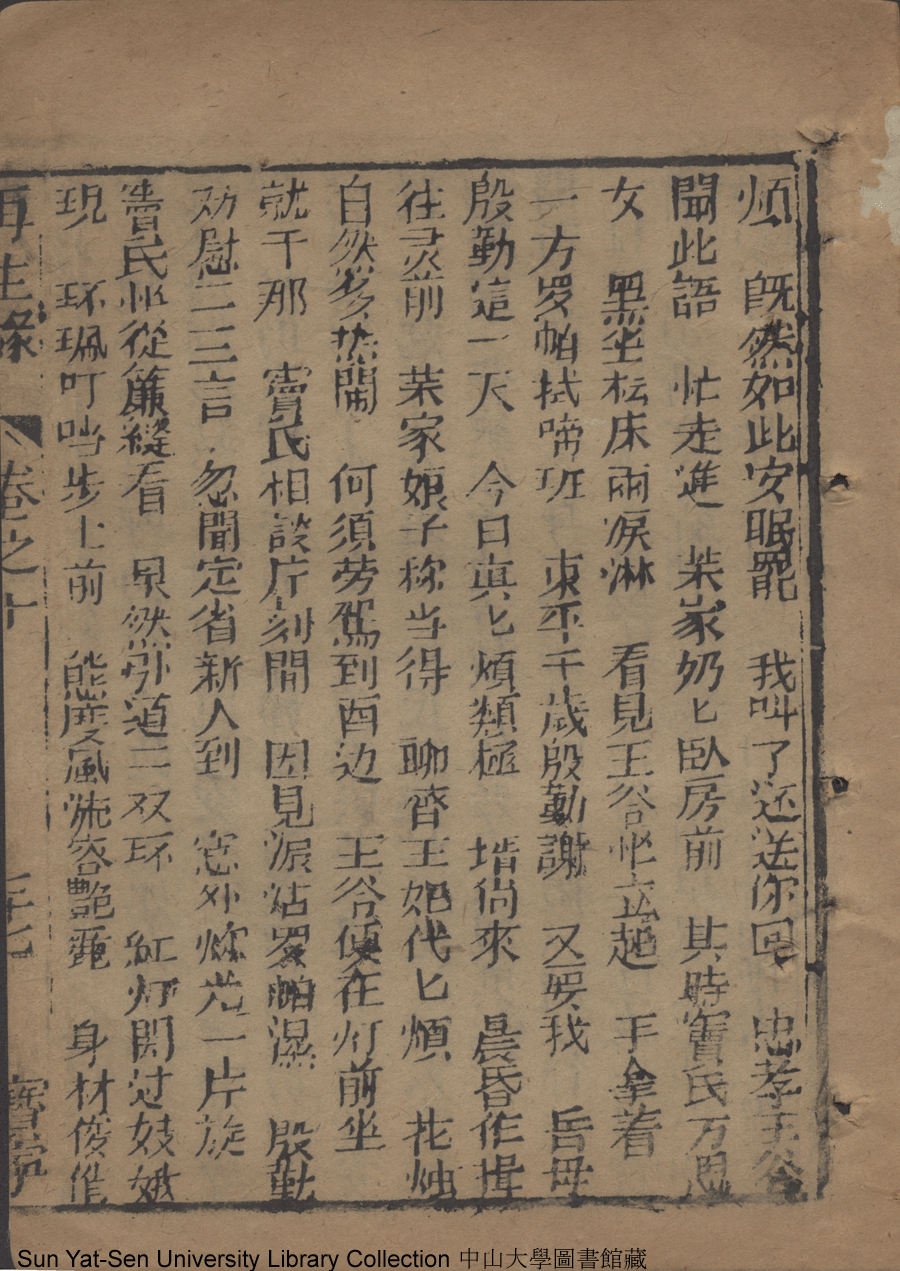 煩　既然如此安眠罷　我叫了還送你回　忠孝王爺
聞此語　忙走進　茉家奶匕臥房前　其時竇氏万恩
女　黑坐枟床兩淚淋　看見王爺忙立起　手拿着
一方罗帕拭啼班　東平千歲殷勤謝　又要我　岳母
殷勤這一天　今日真匕煩類極　壻尚來　晨昏作揖
往灵前　茉家娘子称当得　聊齊王妃代匕煩　花烛
自然多热閙　何須劳駕到西边　王爺便在灯前坐
就干那　竇氏相談片刻間　因見淚沾罗帕濕　殷勤
劝慰二三言　忽聞定省新人到　窓外燈光一片旋
竇氏忙從簾縫看　早然引道二双环　紅灯閃过妓娥
現　环珮叮当步上前　態度風流容艷麗　身材俊俏
再生緣　卷之十　寶寧
Sun Yat-Sen University Library Collection 中山大學圖書館藏